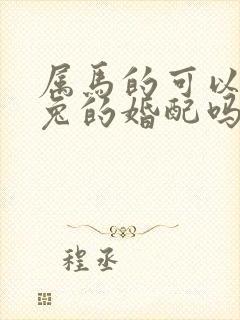 属马的可以
兔的婚配吗
程丞